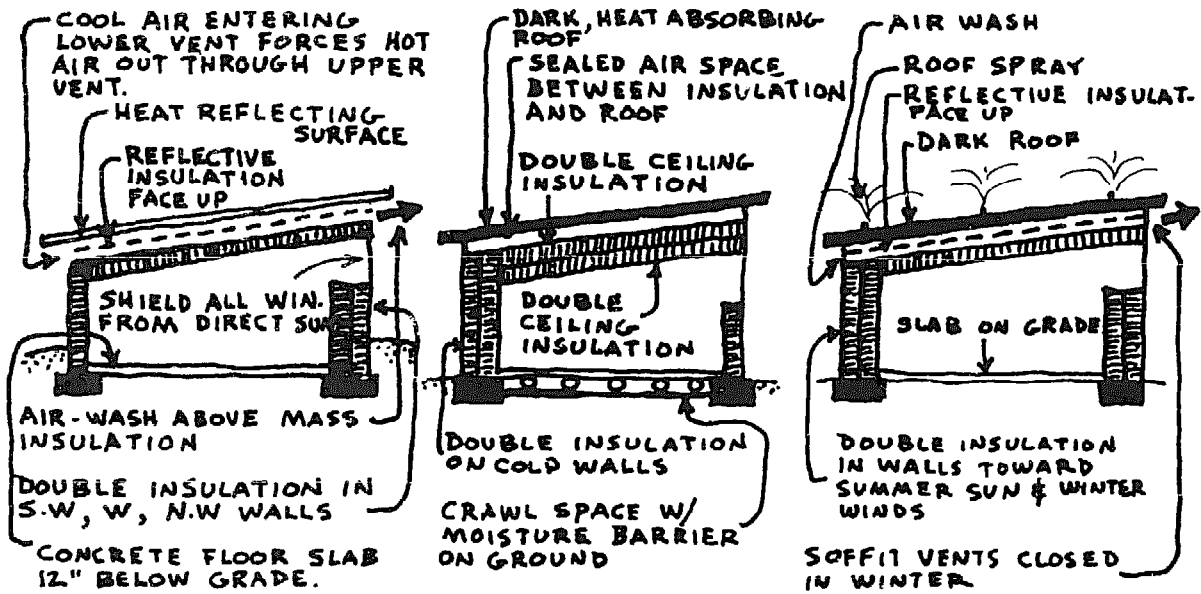 COOL AIR ENTERING
LOWER VENT FORCES HOT
AIR OUT THROUGH UPPER
VENT.
HEAT REFLECTING
SURFACE
REFLECTIVE
INSULATION
FACE UP
SHIELD ALL WIN.
FROM DIRECT SUN
AIR-WASH ABOVE MASS
INSULATION
DOUBLE INSULATION IN
S.W, W, N.W WALLS
CONCRETE FLOOR SLAB
12" BELOW GRADE.
DARK, HEAT ABSORBING
ROOF
SEALED AIR SPACE
BETWEEN INSULATION
AND ROOF
DOUBLE CEILING
INSULATION
DOUBLE
CEILING
INSULATION
DOUBLE INSULATION
ON COLD WALLS
CRAWL SPACE W/
MOISTURE BARRIER
ON GROUND
AIR WASH
ROOF SPRAY
REFLECTIVE INSULAT.
FACE UP
DARK ROOF
SLAB ON GRADE
DOUBLE INSULATION
IN WALLS TOWARD
SUMMER SUN & WINTER
WINDS
SOFFIT VENTS CLOSED
IN WINTER